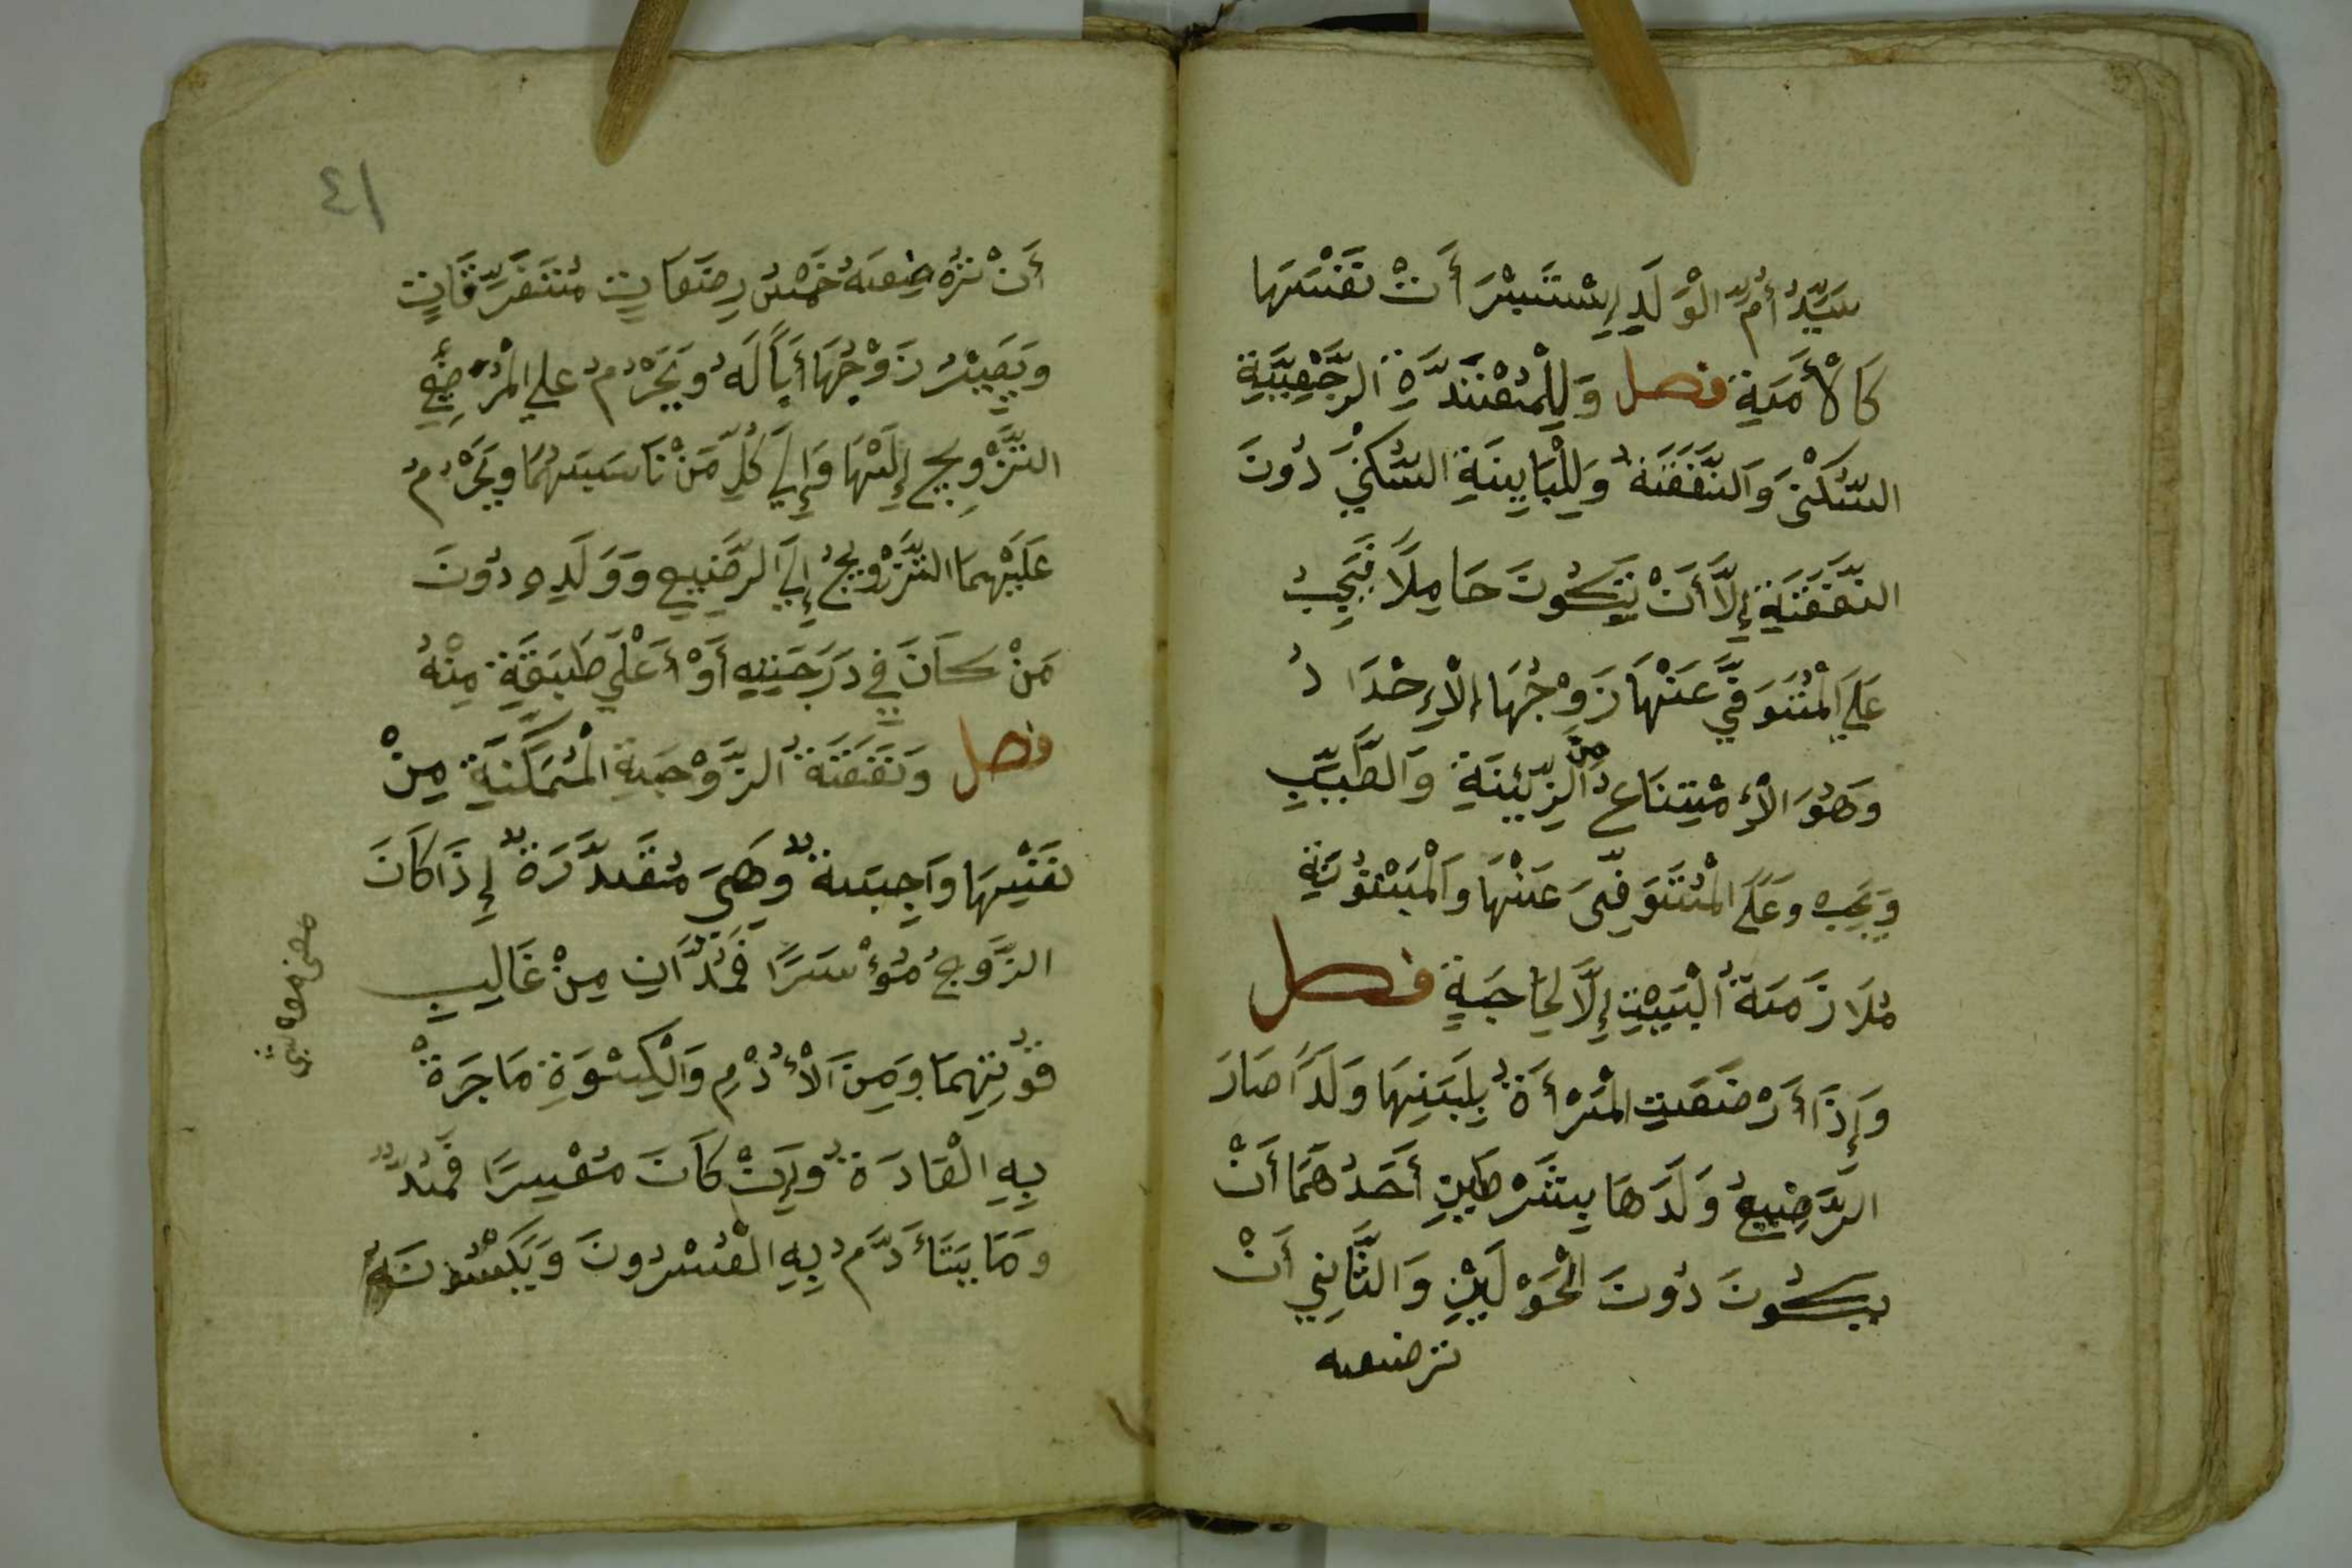 سَيِّدُ أُمِّ الْوَلَدِ اِسْتَبْرَأَتْ نَفْسَهَا
كَالْأَمَةِ فصل وَلِلْمُعْتَدَّةِ الرَّجْعِيَّةِ
السُّكْنَى وَالنَّفَقَةُ وَلِلْبَايِنَةِ السُّكْنَي دُونَ
النَّفَقَةِ إِلَّا أَنْ تَكُونَ حَامِلًا فَيَجِبُ
عَلَي الْمُتَوَفَّي عَنْهَا زَوْجُهَا الْإِحْدَادُ
وَهُوَ الْإِمْتِنَاعُ مِنَ الزِّينَةِ وَالطِّيبِ
وَيَجِبُ وَعَلَى الْمُتَوَفَّى عَنْهَا وَالْمَبْتُوتَةِ
مُلَازَمَةُ الْبَيْتِ إِلَّا لِحَاجَةٍ فصل
وَإِذَا أَرْضَعَتِ الْمَرْأَةُ بِلَبَنِهَا وَلَدًا صَارَ
الرَّضِيعُ وَلَدَهَا بِشَرْطَيْنِ أَحَدُهُمَا أَنْ
يَكُونَ دُونَ الْحَوْلَيْنِ وَالثَّانِي أَنْ
ترضعه
٤١
أَنْ تُرْضِعَهُ خَمْسُ رَضَعَاتٍ مُتَفَرِّقَاتٍ
وَيَصِيْرُ زَوْجُهَا أَبًا لَهُ وَيَحْرُمُ علي الْمُرْضَعِ
التَّزْوِيجُ إِلَيْهَا وَإِلَي كُلِّ مَنْ نَاسَبَهُمَا وَيَحْرُمُ
عَلَيْهِمَا التَّزْوِيجُ إِلَي الرَّضِيعِ وَوَلَدِهِ دُونَ
مَنْ كَانَ فِي دَرَجَتِهِ أَوْ أَعْلَي طَبَقَةٍ مِنْهُ
فصل وَنَفَقَةُ الزَّوْجَةِ الْمُمَكِّنَةِ مِنْ
نَفْسِهَا وَاجِبَةٌ وَهِيَ مُقَدَّرَةٌ إِذَا كَانَ
الزَّوجُ مُؤْسَرًا فَمُدَّانِ مِنْ غَالِبِ
قُوْتِهِمَا وَمِنَ الْأُدْمِ وَالْكِسْوَةِ مَا جَرَةْ
بِهِ الْعَادَةُ وَإِنْ كَانَ مُعْسِرًا فَمُدٌّ
وَمَا يَتَأَدَّمُ بِهِ الْمُعْسِرُونَ وَيَكْسُونَهُ